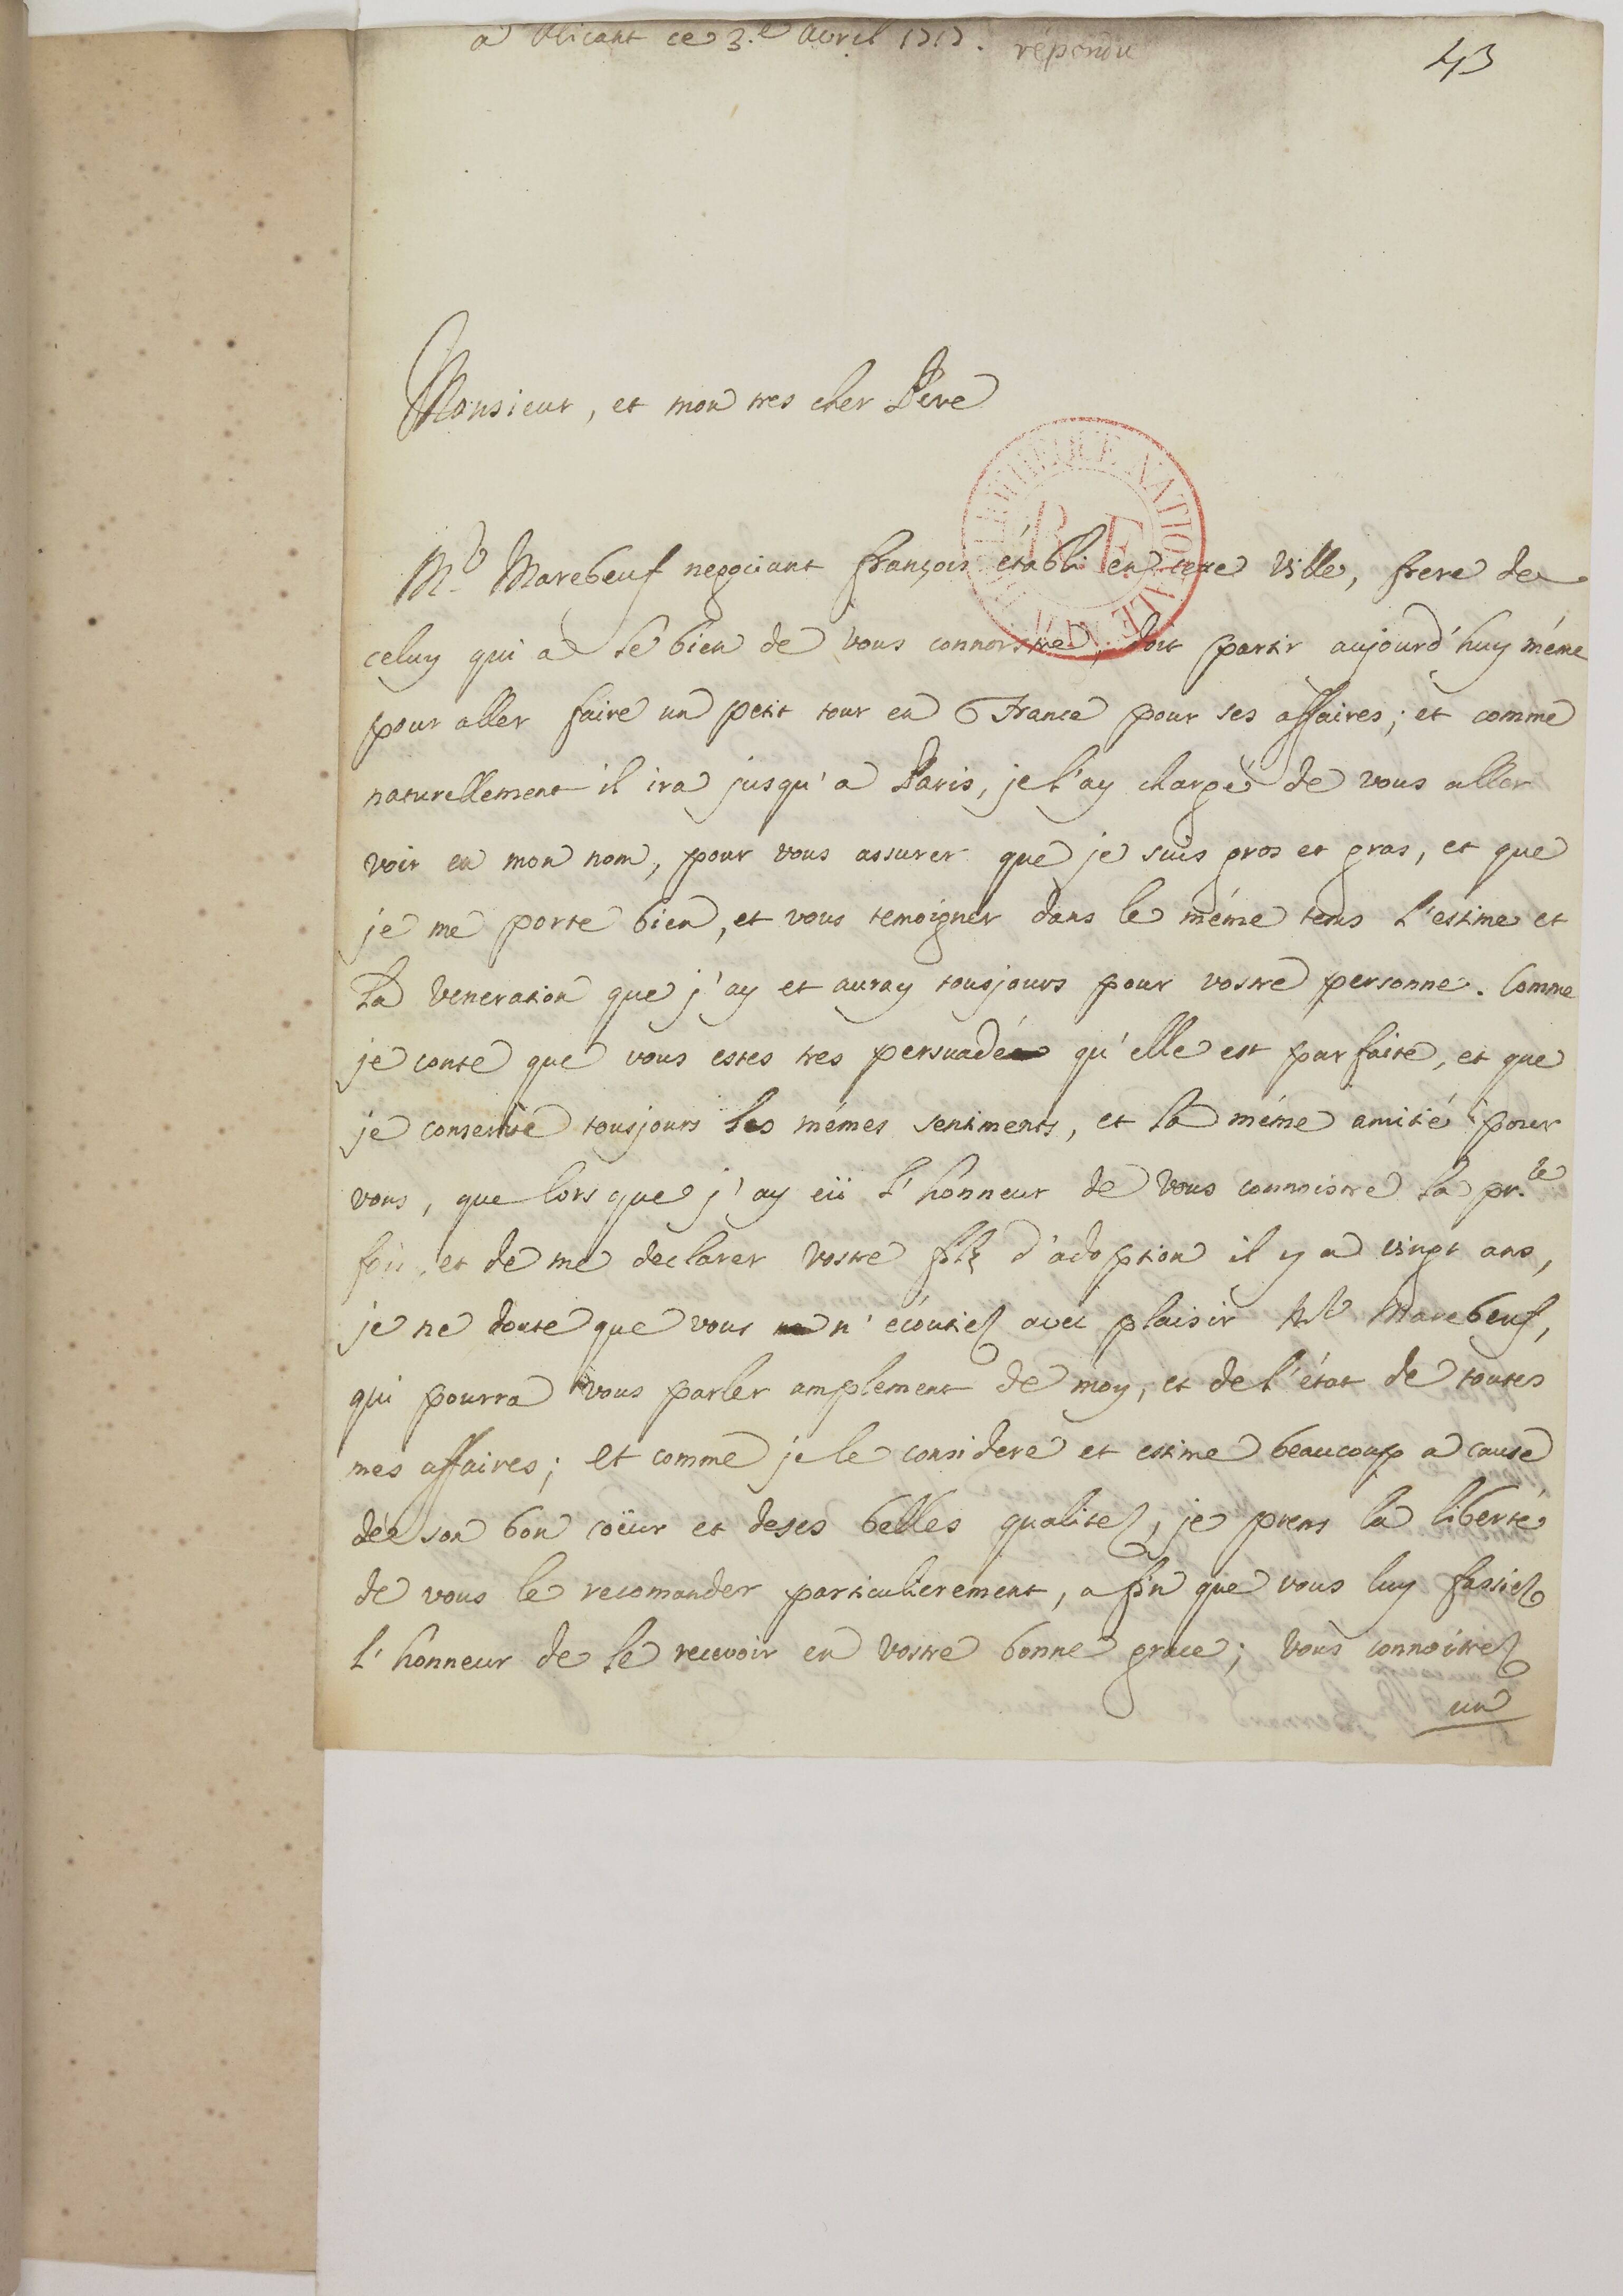 a Alicant ce 3.e Avril 1717. répondu
43
Monsieur, et mon tres cher Pere
Mr Marebeuf negociant françois établi en cette Ville, frere de
celuy qui a le bien de vous connoistre, doit partir aujourd'huy méme
pour aller faire un petit tour en France pour ses affaires; et comme
naturellement il ira jusqu'a Paris, je l'ay chargé de vous aller
voir en mon nom, pour vous assurer que je suis gros et gras, et que
je me porte bien, et vous temoigner dans le méme tems l'estime et
la veneration que j'ay et auray tousjours pour vostre personne. Comme
je conte que vous estes tres persuadé qu'elle est parfaite, et que
je conserve tousjours les mémes sentiments, et la méme amitié pour
vous, que lors que j'ay eü l'honneur de vous connoistre la pr.re
fois, et de me declarer vostre filz d'adoption il y a vingt ans,
je ne doute que vous n'écoutiez avec plaisir Mr Marebeuf,
qui pourra vous parler amplement de moy, et de l'état de toutes
mes affaires; et comme je le considere et estime beaucoup a cause
de son bon coëur et de ses belles qualitez, je prens la liberté
de vous le recomander particulierement, a fin que vous luy fassiez
l'honneur de le recevoir en vostre bonne grace; vous connoitrez
un
BIBLIOTHEQUE NATIONALE MAN
R F